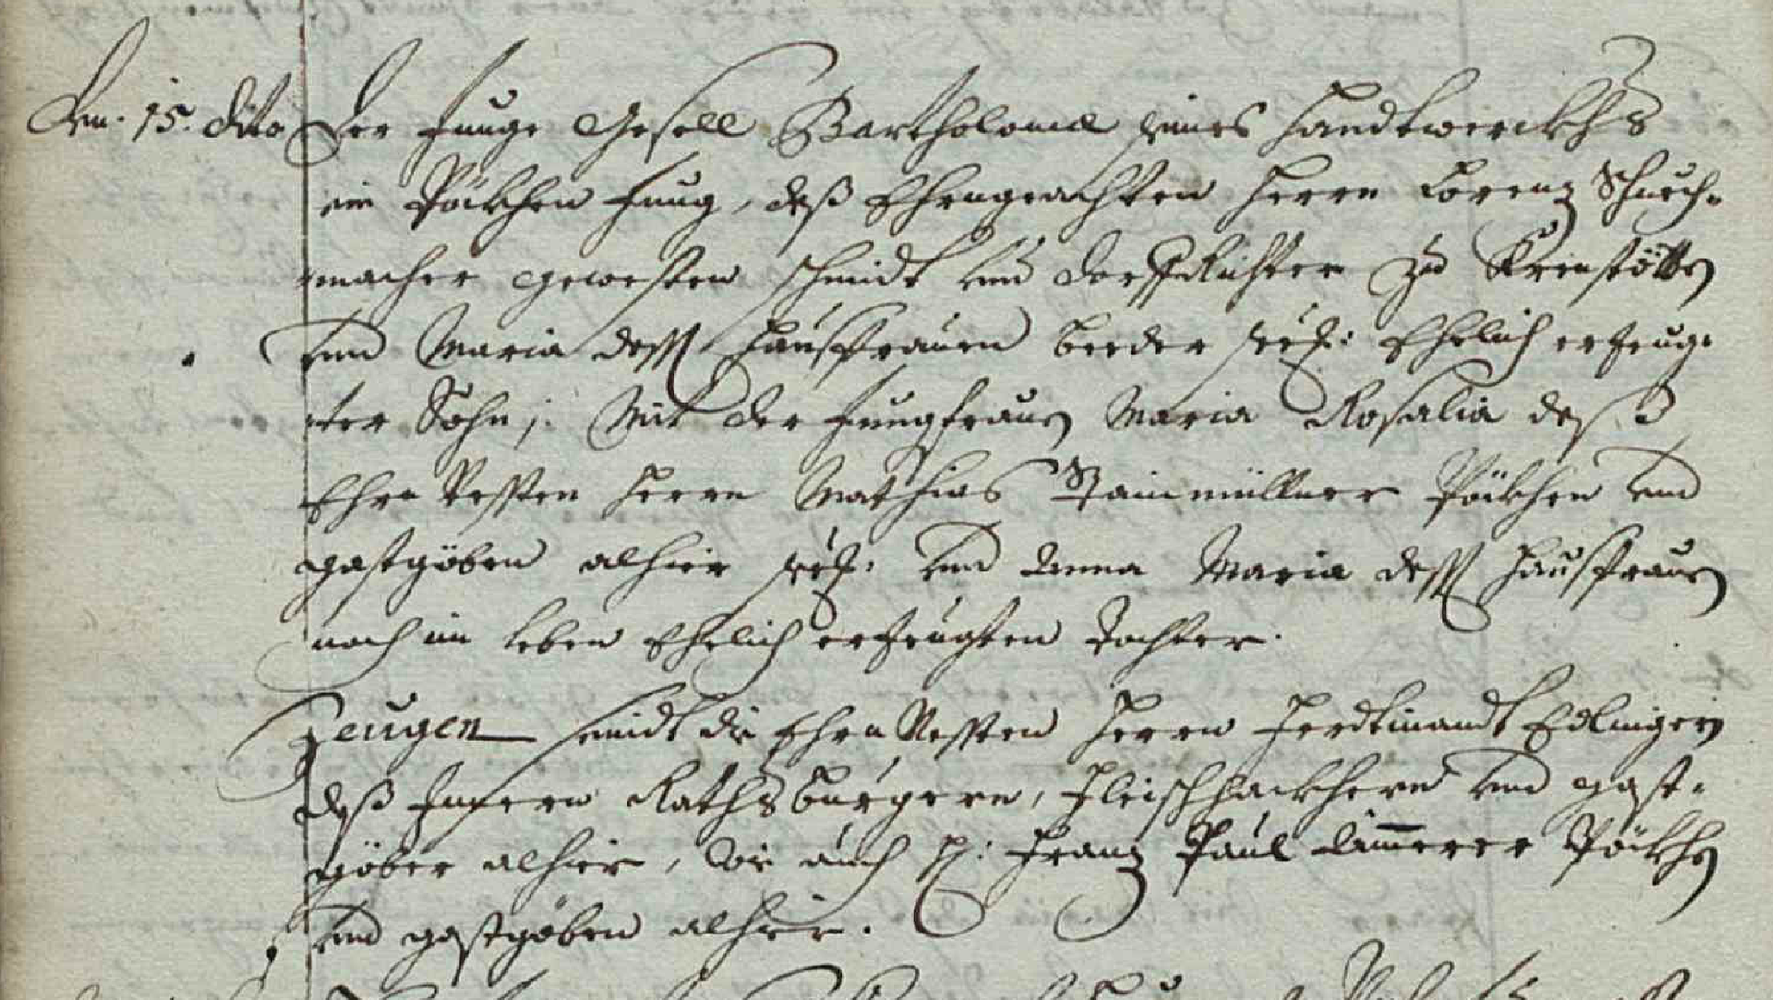 Den 15. dito Der Junge Gesell Bartholomæ seines Handtwerckhs
ein Pöckhen Jung, deß Ehrngeachten Herrn Lorenz Schuech-
macher gewesten Schmidt und Dorffrichter zu Krenstötten
und Maria dessen Haußfrauen beeder seel: Ehelich erzeug-
ter Sohn; Mit der Jungfrauen Maria Rosalia deß
Ehrn Vesten Herrn Mathias Stainmüllner Pöckhen und
gastgöben alhier seel: und Anna Maria dessen Haußfrauen
noch im leben Ehelich erzeugten Tochter.
Zeugen seindt die Ehrn Vesten Herrn Ferdtinandt Edlinger
deß Innern Rathsburgern, Fleischhackhern und gast-
göber alhier, wie auch H: Franz Paul Pöckhen
und gastgöben alhier.